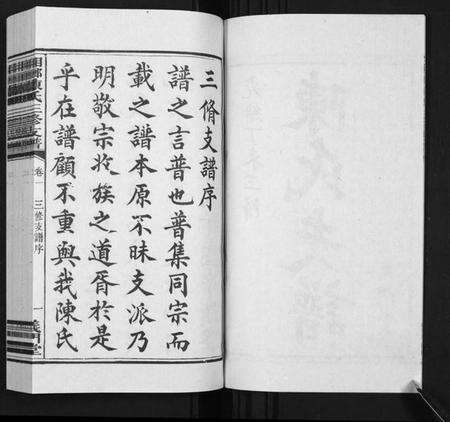 三脩支譜序
譜之言普也普集同宗而
載之譜本原不昧支派乃
明敬宗收族之道胥於是
乎在譜顧不重與我陳氏
陳氏三修支譜
卷一
三修支譜序
一
義門堂